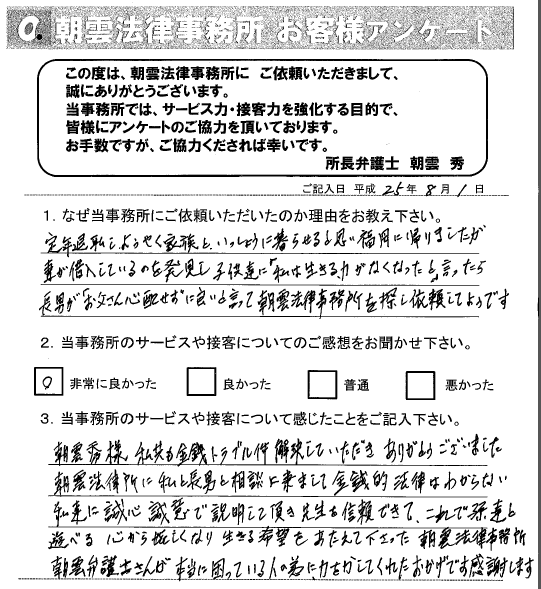 朝雲法律事務所 お客様アンケート
この度は、朝雲法律事務所に ご依頼いただきまして、
誠にありがとうございます。
当事務所では、サービス力・接客力を強化する目的で、
皆様にアンケートのご協力を頂いております。
お手数ですが、ご協力くだされば幸いです。
所長弁護士 朝雲 秀
ご記入日 平成 25年 8月 1日
1. なぜ当事務所にご依頼いただいたのか理由をお教え下さい。
定年退職しようやく家族と、いっしょに暮らせると思い福岡に帰りましたが
妻が借入しているのを発見し子供達に「私は生きる力がなくなった」と言ったら
長男が「お父さん心配せずに良いと言って朝雲法律事務所を探し依頼してようです
2. 当事務所のサービスや接客についてのご感想をお聞かせ下さい。
○ 非常に良かった 良かった 普通 悪かった
3. 当事務所のサービスや接客について感じたことをご記入下さい。
朝雲秀様、私共の金銭トラブル件 解決していただき ありがとうございました
朝雲法律所に 私と長男と相談に来まして 金銭的 法律はわからない
私達に 誠心 誠意で説明して頂き 先生も信頼できて、これで孫達と
遊べる 心から嬉しくなり 生きる希望を あたえて下さった 朝雲法律事務所
朝雲弁護士さんが 本当に困っている人の為に、力をかしてくれたおかげです感謝します